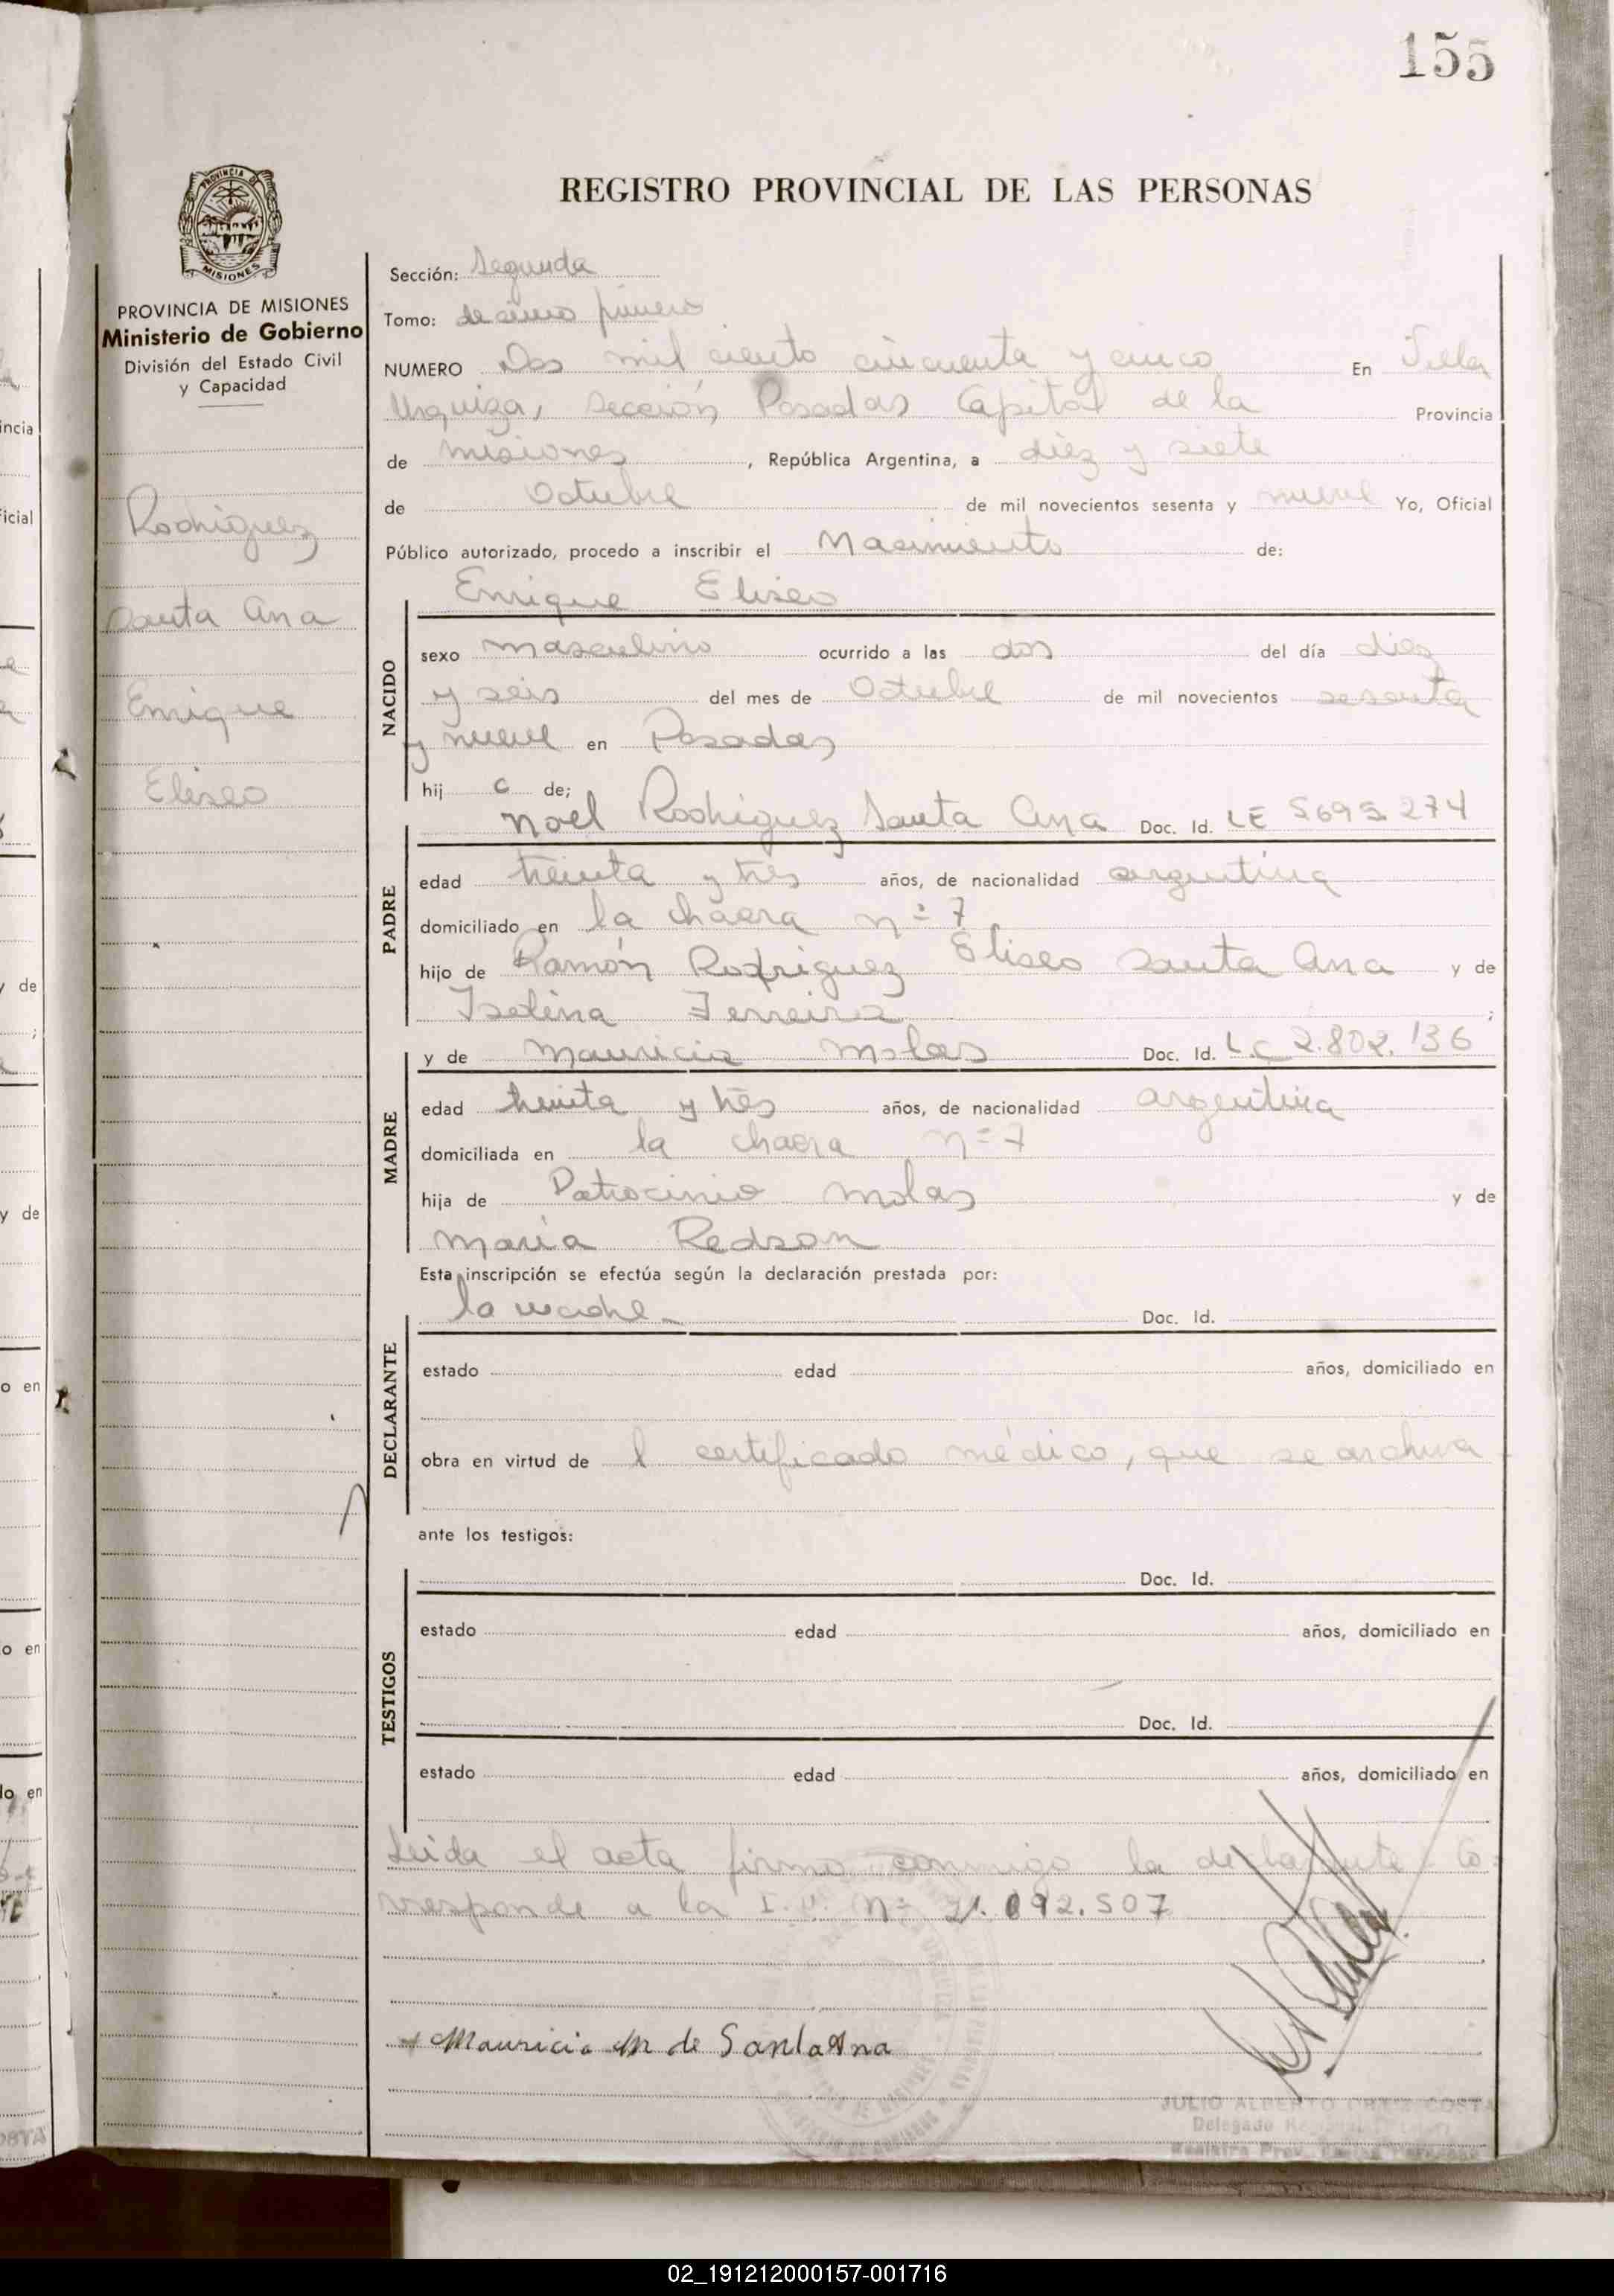 155
REGISTRO PROVINCIAL DE LAS PERSONAS
PROVINCIA DE
MISIONES
PROVINCIA DE MISIONES
Ministerio de Gobierno
División del Estado Civil
y Capacidad
Rodriguez
Santa Ana
Enrique
Eliseo
Sección: Segunda
Tomo: decimo primero
NUMERO Dos mil ciento cincuenta y cinco En Villa
Urquiza, Sección Posadas Capital de la Provincia
de Misiones, República Argentina, a diez y siete
de Octubre de mil novecientos sesenta y nueve Yo, Oficial
Público autorizado, procedo a inscribir el Nacimiento de:
Enrique Eliseo
NACIDO
sexo masculino ocurrido a las dos del día diez
y seis del mes de Octubre de mil novecientos sesenta
y nueve en Posadas
hij o de;
Noel Rodriguez Santa Ana Doc. Id. LE 5695274
PADRE
edad treinta y tres años, de nacionalidad argentina
domiciliado en la chacra nº 7
hijo de Ramón Rodriguez Eliseo Santa Ana y de
Isolina Ferreira ;
MADRE
y de Mauricia Molas Doc. Id. L.C 2.802.136
edad treinta y tres años, de nacionalidad argentina
domiciliada en la chacra nº 7
hija de Patrocinio Molas y de
Maria Redson
Esta inscripción se efectúa según la declaración prestada por:
la madre Doc. Id.
DECLARANTE
estado edad años, domiciliado en
obra en virtud de l certificado médico, que se archiva
ante los testigos:
TESTIGOS
Doc. Id.
estado edad años, domiciliado en
Doc. Id.
estado edad años, domiciliado en
Leida el acta firma conmigo la declarante. Co-
rresponde a la I.U. Nº 21.092.507
Mauricia M de Santa Ana
JULIO ALBERTO COSTA
Delegado
Registro Prov. de las Personas
02_191212000157-001716